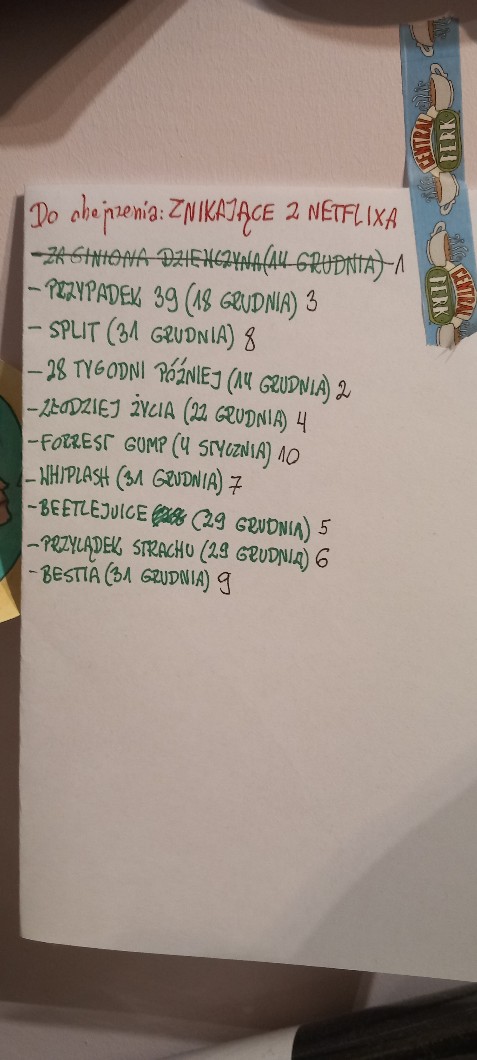 Do obejrzenia: ZNIKAJĄCE Z NETFLIXA
- ZAGINIONA DZIEWCZYNA (14 GRUDNIA) - 1
- PRZYPADEK 39 (18 GRUDNIA) 3
- SPLIT (31 GRUDNIA) 8
- 28 TYGODNI PÓŹNIEJ (14 GRUDNIA) 2
- ZŁODZIEJ ŻYCIA (22 GRUDNIA) 4
- FORREST GUMP (4 STYCZNIA) 10
- WHIPLASH (31 GRUDNIA) 7
- BEETLEJUICE (29 GRUDNIA) 5
- PRZYLĄDEK STRACHU (29 GRUDNIA) 6
- BESTIA (31 GRUDNIA) 9
CENTRAL PERK
CENTRAL PERK